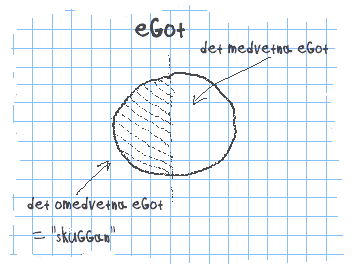 eGot
det medvetna eGot
det omedvetna eGot
= "skuGGan"